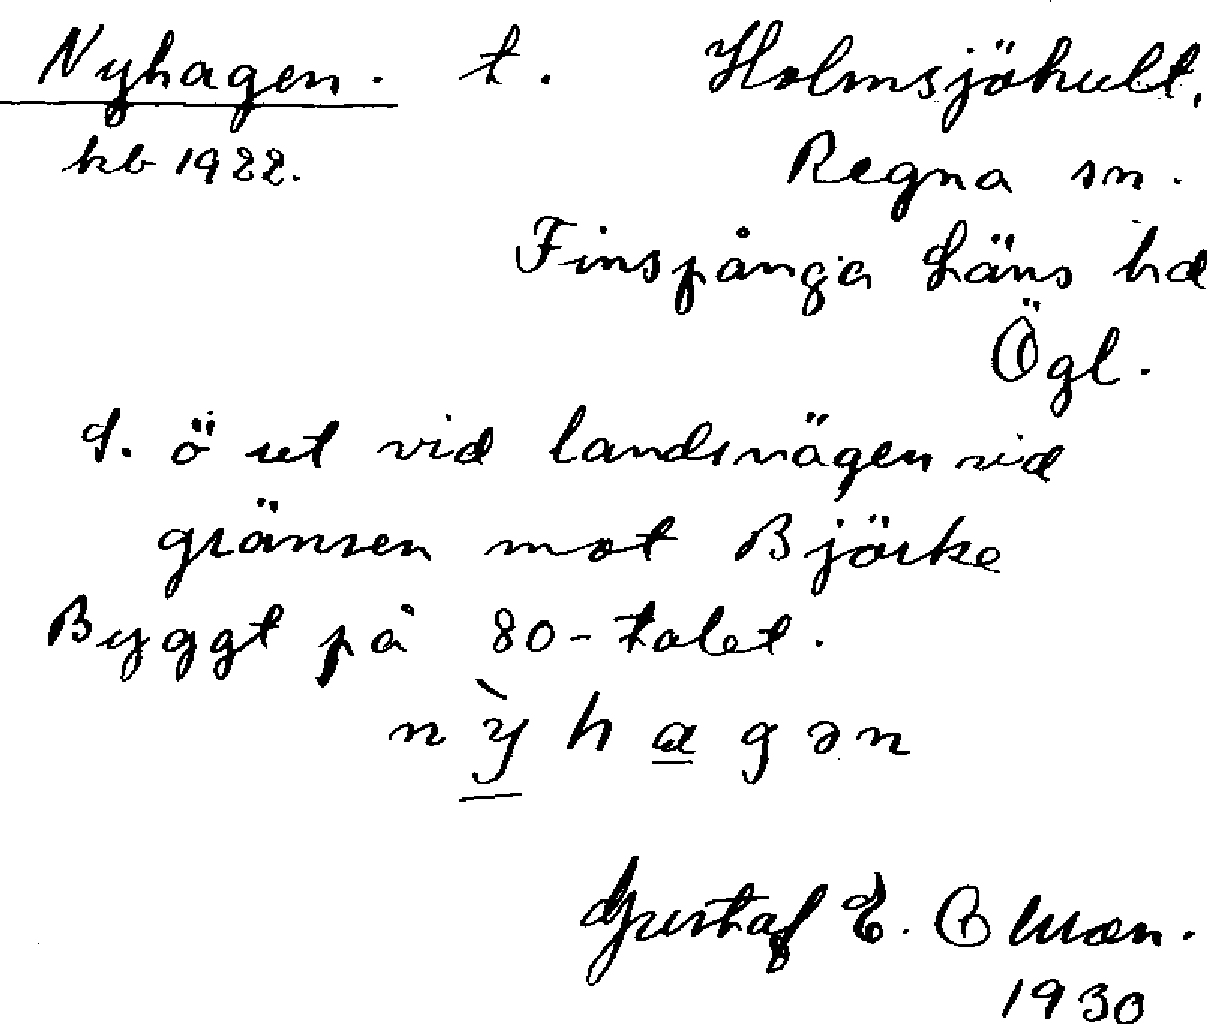 Nyhagen. t. Holmsjöhult.
kb 1922. Regna sn.
Finspånga läns hd
Ögl.
l. ö ut vid landsvägen vid
gränsen mot Björke
Byggt på 80-talet.
nỳhagən
Gustaf E. Olsson.
1930